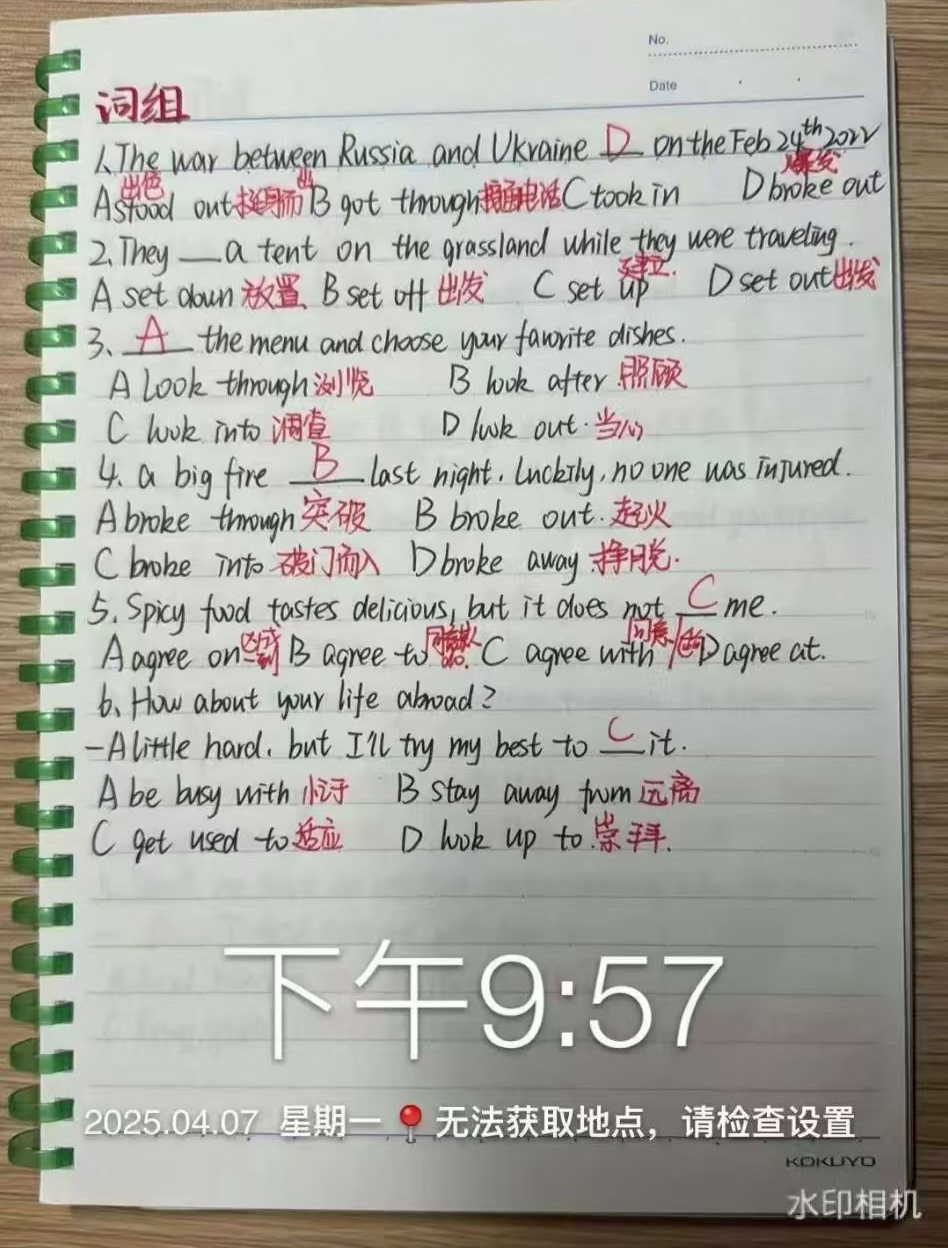 No.
Date
词组
1、The war between Russia and Ukraine D on the Feb 24th 2022
A stood out 出色 挺身而出 B got through 接通电话 C took in D broke out 爆发
2、They __ a tent on the grassland while they were traveling.
A set down 放置 B set off 出发 C set up 建立. D set out 出发
3、 A the menu and choose your favorite dishes.
A Look through 浏览 B look after 照顾
C look into 调查 D look out. 当心
4、a big fire B last night. Luckily, no one was injured.
A broke through 突破 B broke out. 起火
C broke into 破门而入 D broke away 挣脱.
5、Spicy food tastes delicious, but it does not C me.
A agree on 达成一致 B agree to C agree with 同意/适合 D agree at.
6、How about your life abroad?
-A little hard. but I'll try my best to C it.
A be busy with 忙于 B stay away from 远离
C get used to 适应 D look up to. 崇拜.
下午9:57
2025.04.07 星期一 📍 无法获取地点，请检查设置
KOKUYO
水印相机